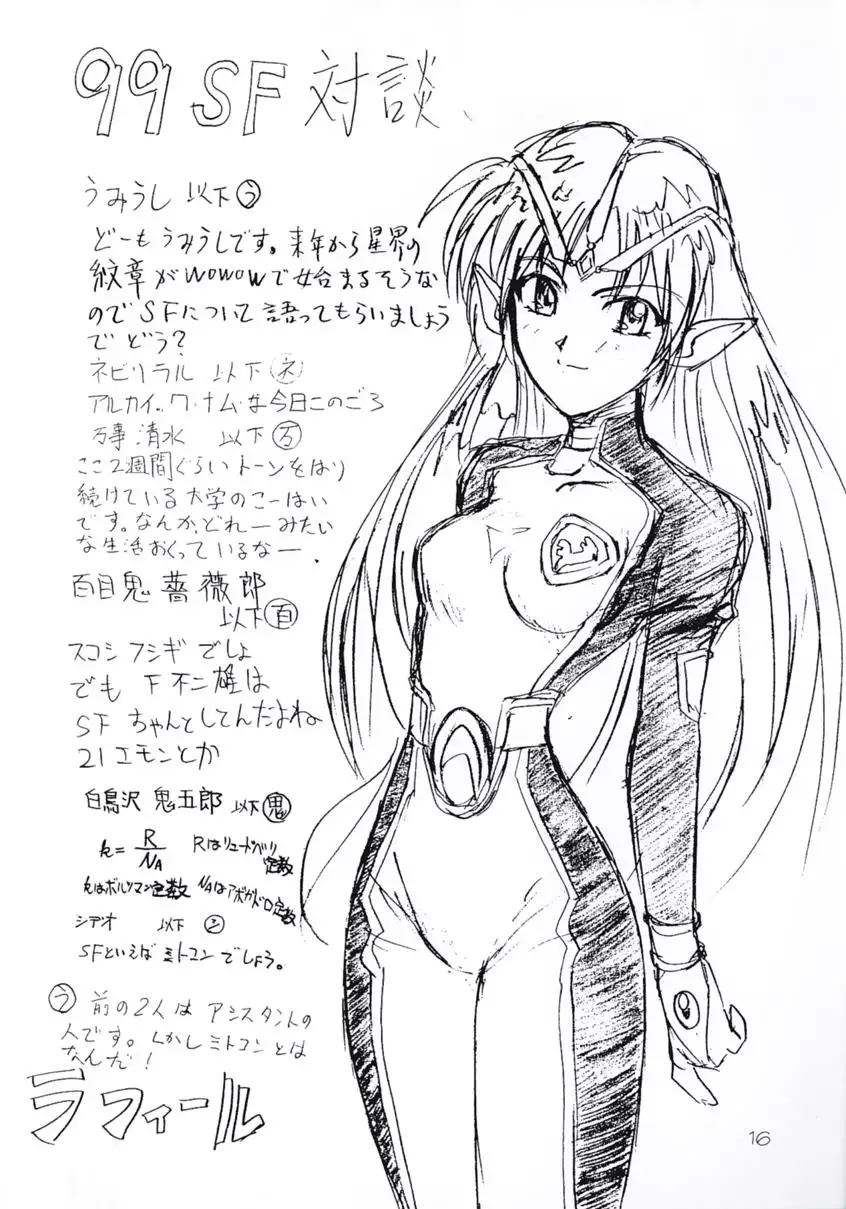 99 SF 対談、
うみうし 以下う
どーもうみうしです。来年から星界の
紋章がWOWOWで始まるそうな
のでSFについて語ってもらいましょう
でどう?
ネビリラル 以下ネ
アルカイ、ワ・ナム・な今日このごろ
万事 清水 以下万
ここ2週間ぐらいトーンをはり
続けている大学のこーはい
です。なんか、どれーみたい
な生活おくっているなー.
百目鬼 薔薇郎
以下百
スコシ フシギ でしょ
でも F不二雄は
SF ちゃんとしてんだよね
21エモンとか
白鳥沢 鬼五郎 以下鬼
k= R/NA Rはリュードベリ定数
kはボルツマン定数 NAはアボガドロ定数
シデオ 以下シ
SFといえば ミトコン でしょう。
う 前の2人は アシスタントの
人です。しかしミトコンとは
なんだ!
ラフィール
16